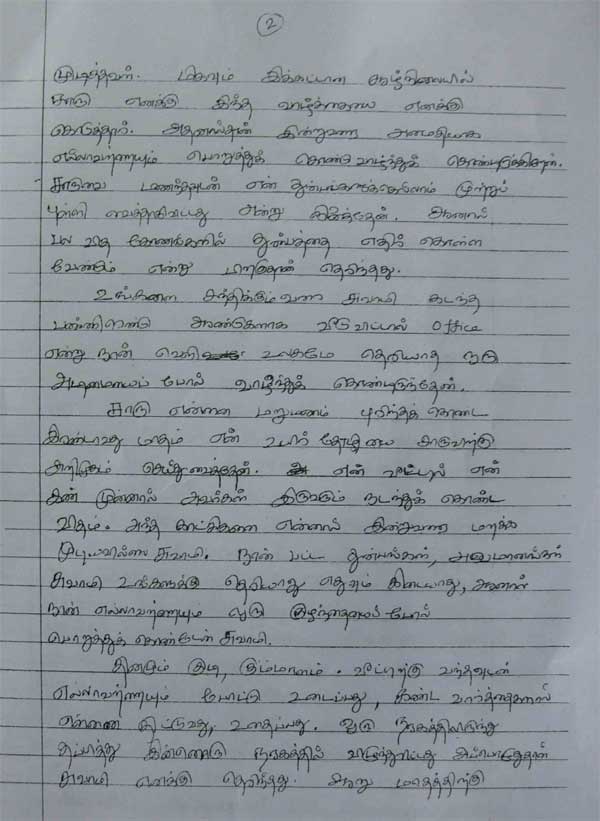 2
முடித்தவர். மிகவும் இக்கட்டான சூழ்நிலையில்
சாரு எனக்கு இந்த வாழ்க்கையை எனக்கு
கொடுத்தார். அதனால்தான் இன்றுவரை அமைதியாக
எல்லாவற்றையும் பொறுத்துக் கொண்டு வாழ்ந்துக் கொண்டிருக்கிறேன்.
சாருவை மணந்தவுடன் என் துன்பங்களுக்கெல்லாம் முற்றுப்
புள்ளி வைத்தாகிவிட்டது என்று நினைத்தேன். ஆனால்
பல வித கோணங்களில் துன்பத்தை எதிர் கொள்ள
வேண்டும் என்று பிறகுதான் தெரிந்தது.
உங்களை சந்திக்கும் வரை சுவாமி கடந்த
பன்னிரெண்டு ஆண்டுகளாக வீடு விட்டால் office
என்று நான் வெளி உலகமே தெரியாத ஒரு
அடிமையைப் போல் வாழ்ந்துக் கொண்டிருந்தேன்.
சாரு என்னை மறுமணம் புரிந்துக் கொண்ட
இரண்டாவது மாதம் என் உயிர் தோழியை சாருவிற்கு
அறிமுகம் செய்து வைத்தேன். என் வீட்டில் என்
கண் முன்னால் அவர்கள் இருவரும் நடந்துக் கொண்ட
விதம். அந்த காட்சிகளை என்னால் இன்றுவரை மறக்க
முடியவில்லை சுவாமி. நான் பட்ட துன்பங்கள், அவமானங்கள்
சுவாமி உங்களுக்கு தெரியாது எதுவும் கிடையாது, ஆனால்
நான் எல்லாவற்றையும் ஒரு குழந்தையைப் போல்
பொறுத்துக் கொண்டேன் சுவாமி.
தினமும் குடி, கும்மாளம். வீட்டிற்கு வந்தவுடன்
எல்லாவற்றையும் போட்டு உடைப்பது, கண்ட வார்த்தைகளால்
என்னை திட்டுவது, உதைப்பது. ஒரு நரகத்திலிருந்து
தப்பித்து இன்னொரு நரகத்தில் விழுந்துவிட்டது அப்போதுதான்
சுவாமி எனக்கு தெரிந்தது. ஆறு மாதத்திற்கு